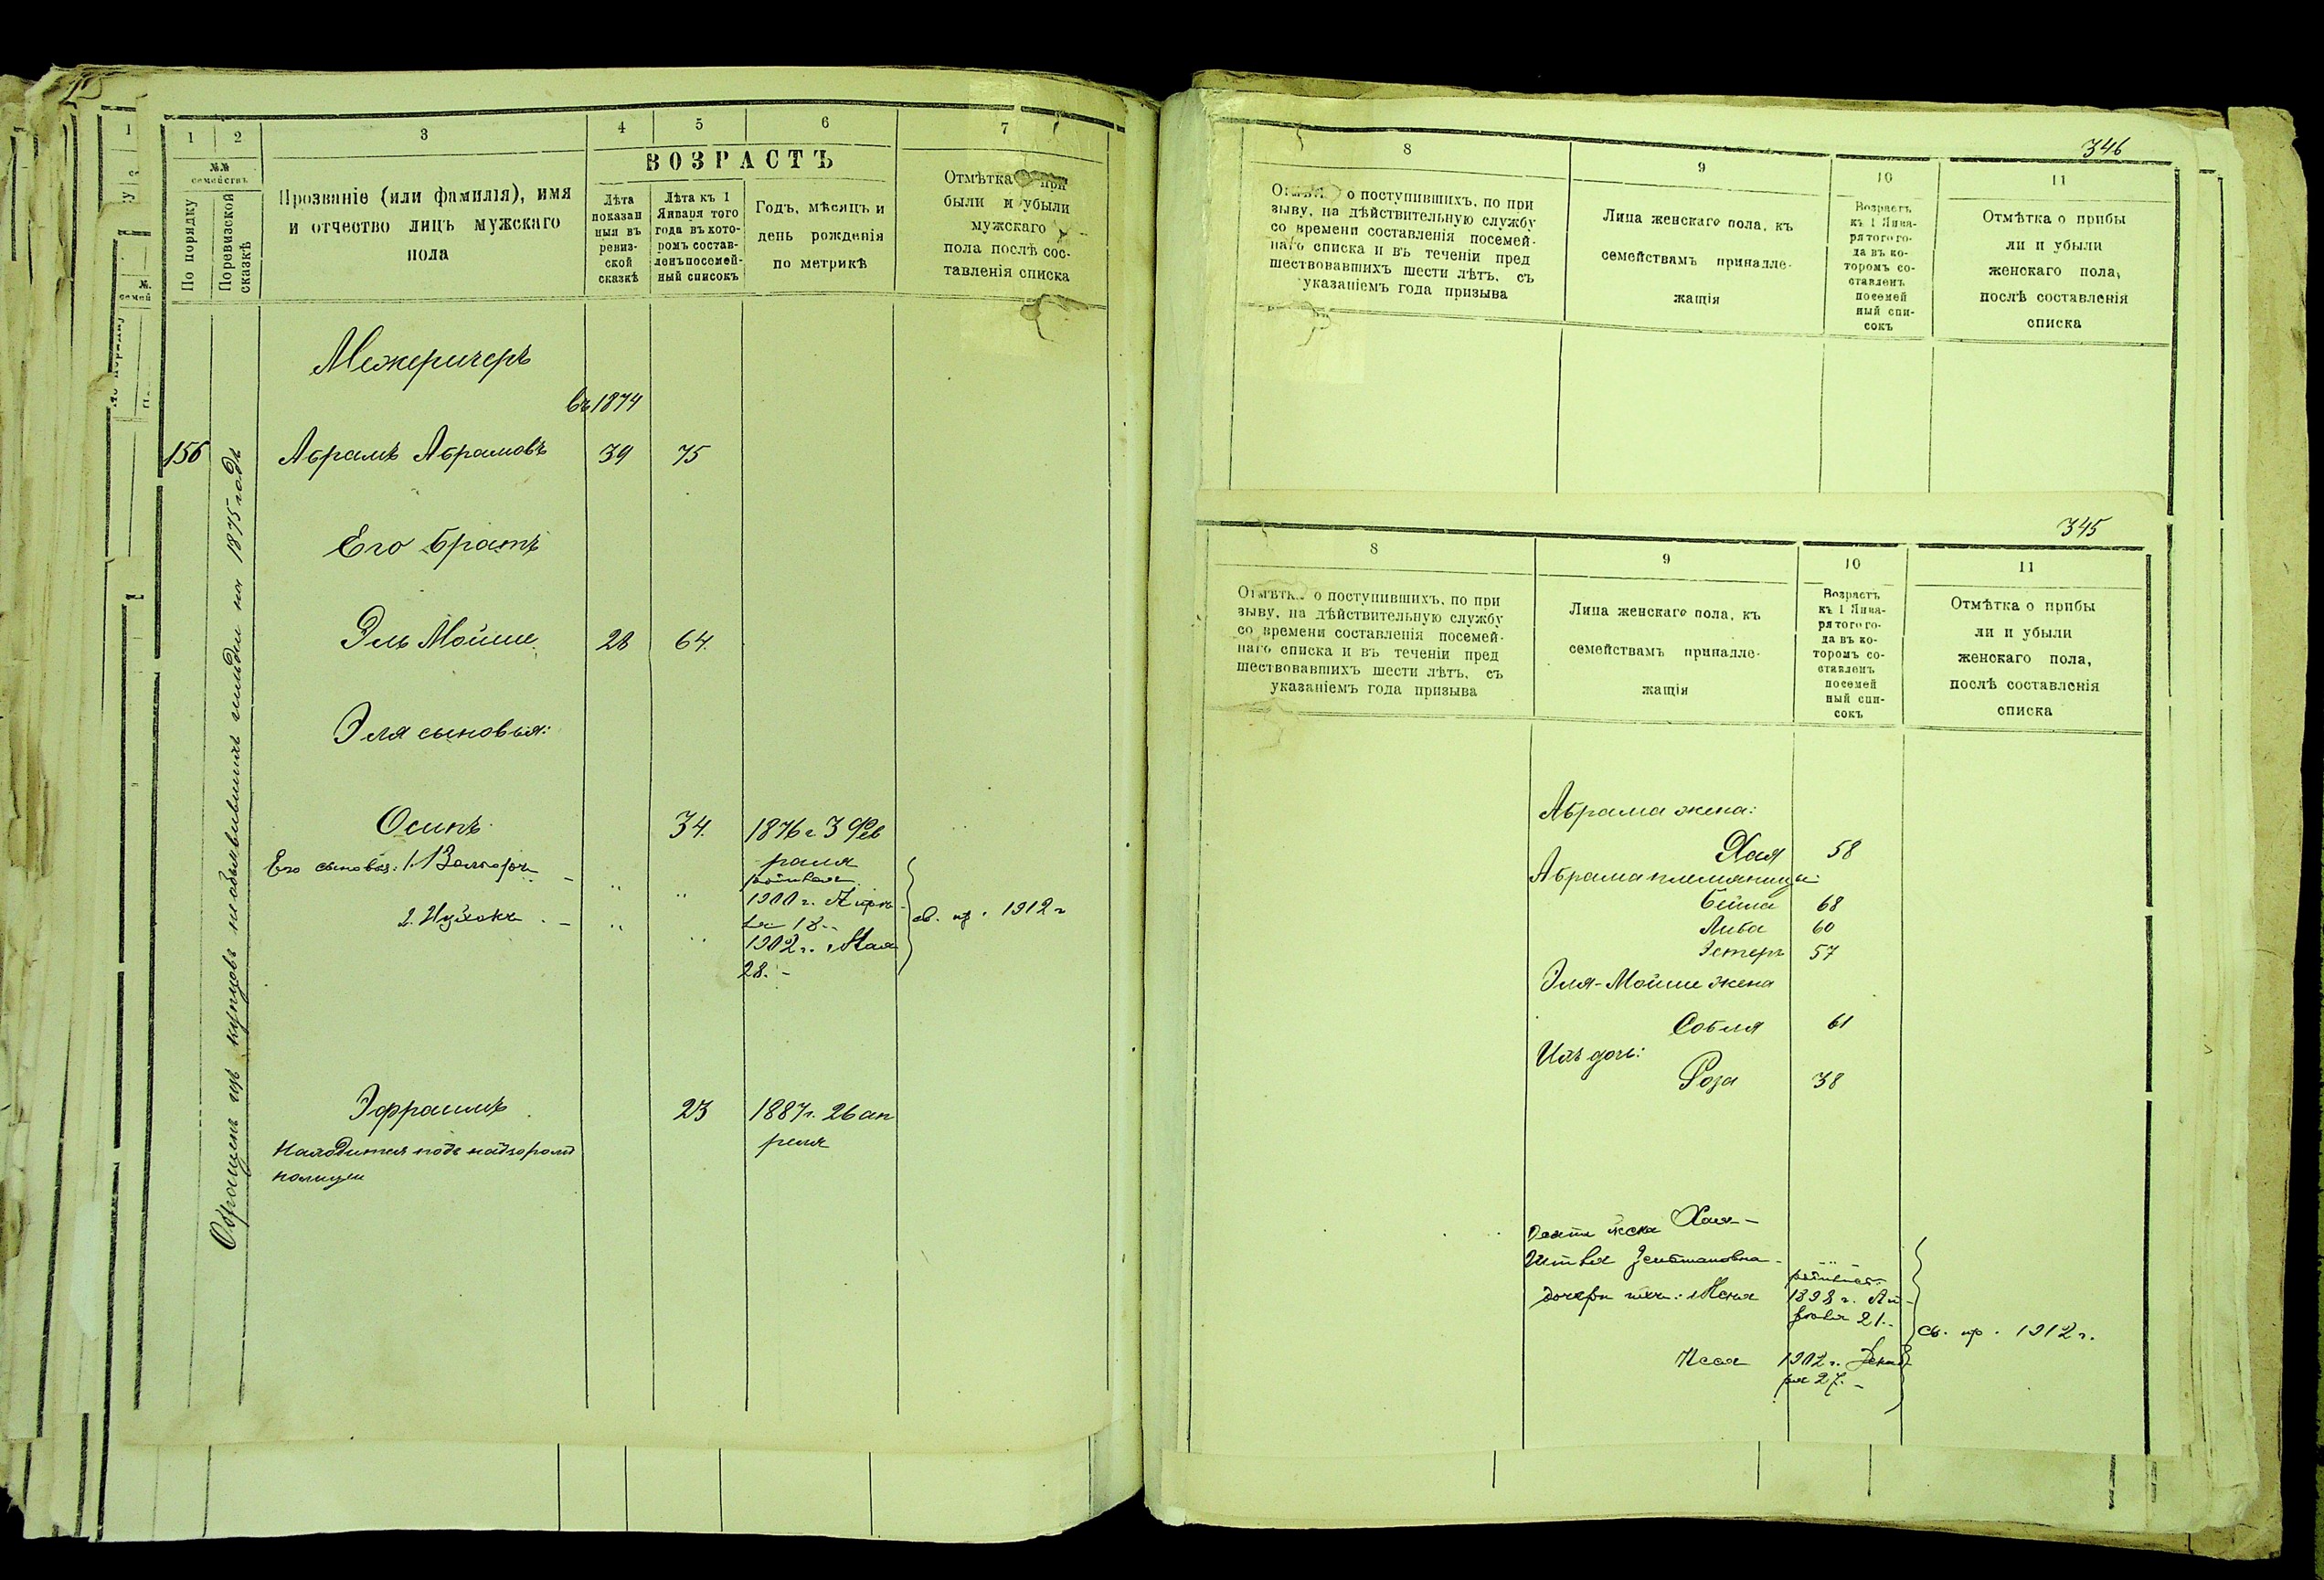 1
2
3
4
5
6
7
№№
семействъ
По порядку
По ревизской сказкѣ
Прозваніе (или фамилія), имя
и отчество лицъ мужскаго
пола
ВОЗРАСТЪ
Лѣта
показан
ныя въ
ревиз-
ской
сказкѣ
Лѣта къ 1
Января того
года въ кото-
ромъ состав-
ленъ посемей-
ный списокъ
Годъ, мѣсяцъ и
день рожденія
по метрикѣ
Отмѣтка при
были и убыли
мужскаго
пола послѣ сос-
тавленія списка
Межеричеръ
въ 1874
156
Абрамъ Абрамовъ
39
75
Его братъ
Эль Мойше
28
64.
Эля сыновья:
Осипъ
34.
1876 г 3 Фев
раля
Его сыновья: 1.
родился
1900 г. Апрѣ-
ля 18.-
2. Ицхокъ
1902 г. Мая
28.-
св. пр. 1912 г
Эфраимъ
23
1887 г. 26 ап
реля
Находится подъ надзоромъ
полиціи
Обращенъ изъ купцовъ необъявившихъ гильдіи на 1875 годъ
346
8
9
10
11
Отмѣтка о поступившихъ, по при
зыву, на дѣйствительную службу
со времени составленія посемей-
наго списка и въ теченіи пред
шествовавшихъ шести лѣтъ, съ
указаніемъ года призыва
Лица женскаго пола, къ
семействамъ принадле-
жащія
Возрастъ
къ 1 Янва-
ря того го-
да въ ко-
торомъ со-
ставленъ
посемей
ный спи-
сокъ
Отмѣтка о прибы
ли и убыли
женскаго пола,
послѣ составленія
списка
345
8
9
10
11
Отмѣтка о поступившихъ, по при
зыву, на дѣйствительную службу
со времени составленія посемей-
наго списка и въ теченіи пред
шествовавшихъ шести лѣтъ, съ
указаніемъ года призыва
Лица женскаго пола, къ
семействамъ принадле-
жащія
Возрастъ
къ 1 Янва-
ря того го-
да въ ко-
торомъ со-
ставленъ
посемей
ный спи-
сокъ
Отмѣтка о прибы
ли и убыли
женскаго пола,
послѣ составленія
списка
Абрама жена:
Хая 58
Абрама племяницы:
Бейла 68
Либа 60
Эстеръ 57
Эля-Мойше жена
Собля 61
Ихъ дочь:
Роза 38
жена Хая-
дочери ихъ: Меня
родилась:
1898 г. Ан-
варя 21.-
1902 г. Декаб
ря 27.-
св. пр. 1912 г.